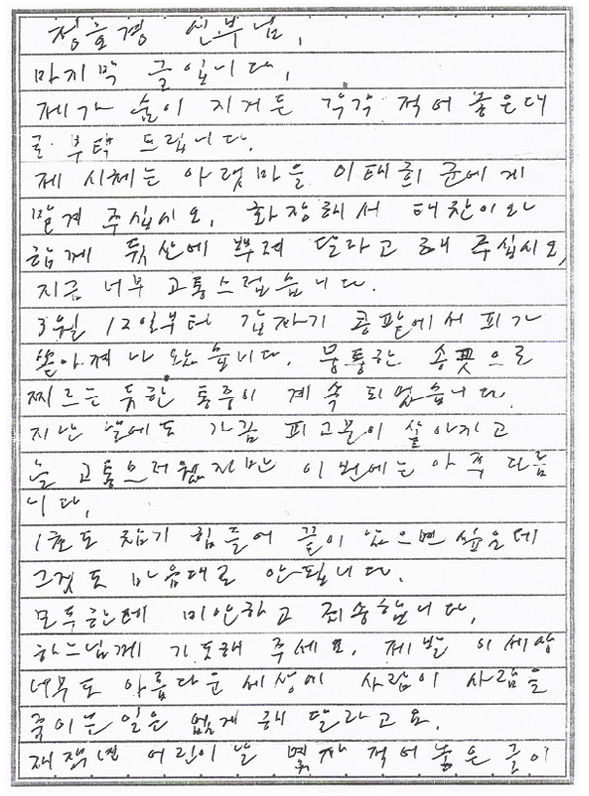 정호경 신부님,
마지막 글입니다,
제가 숨이 지거든 각각 적어 놓은대
로 부탁 드립니다.
제 시체는 아랫마을 이태희 군에게
맡겨 주십시오, 화장해서 태찬이와
함께 뒷산에 뿌려 달라고 해 주십시오,
지금 너무 고통스럽습니다.
3월 12일부터 갑자기 콩팥에서 피가
쏟아져 나왔습니다. 뭉툭한 송곳으로
찌르는 듯한 통증이 계속 되었습니다.
지난 날에도 가끔 피고름이 쏟아지고
늘 고통스러웠지만 이번에는 아주 다릅
니다.
1초도 참기 힘들어 끝이 났으면 싶은데
그것도 마음대로 안됩니다.
모두한테 미안하고 죄송합니다.
하느님께 기도해 주세요. 제발 이 세상
너무도 아름다운 세상에 사람이 사람을
죽이는 일은 없게 해 달라고요.
재작년 어린이날 적어놓은 글이